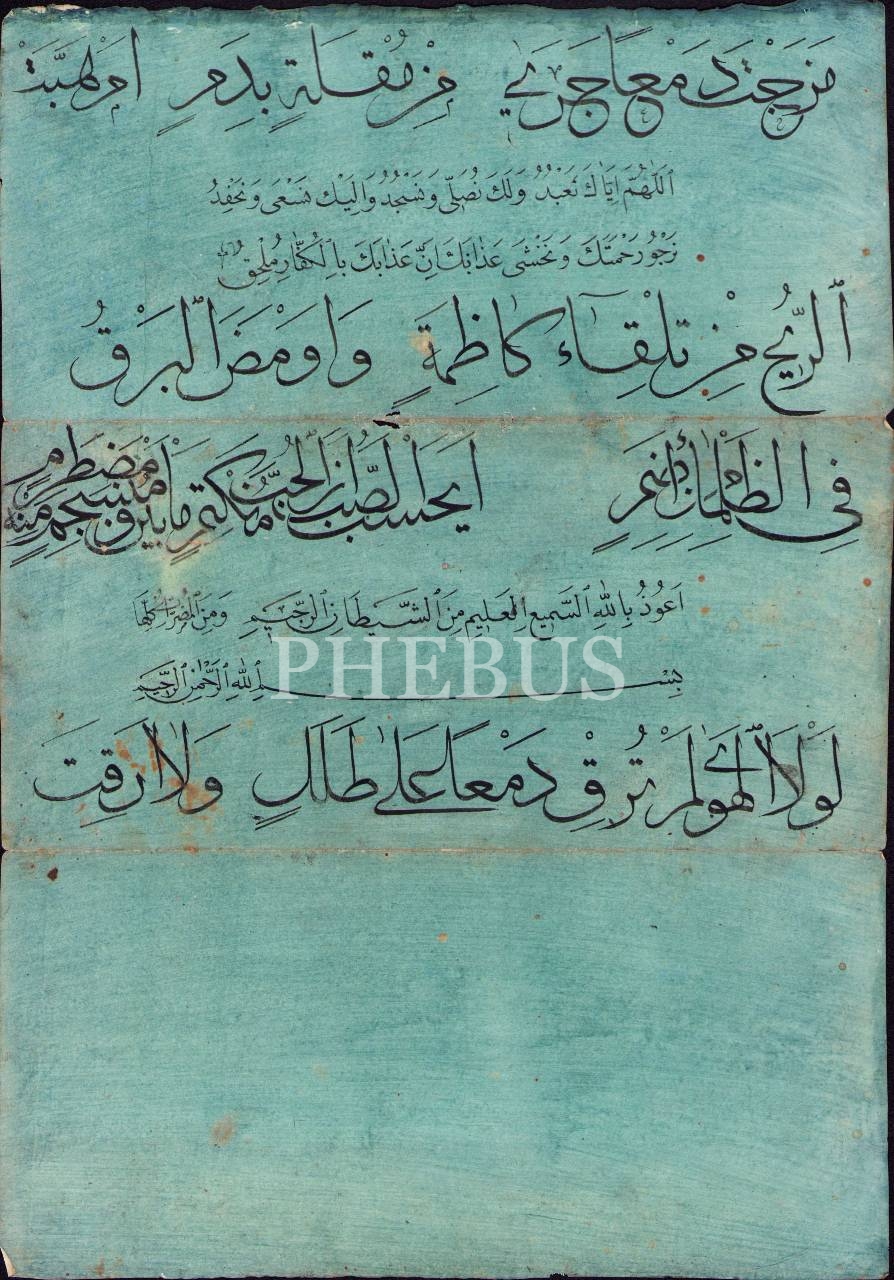 مَزَجْتَ دَمْعًا جَرٰى مِنْ مُقْلَةٍ بِدَمٍ اَمْ هَبَّتْ
اَللّٰهُمَّ اِيَّاكَ نَعْبُدُ وَلَكَ نُصَلّٖى وَنَسْجُدُ وَاِلَيْكَ نَسْعٰى وَنَحْفِدُ
نَرْجُو رَحْمَتَكَ وَنَخْشٰى عَذَابَكَ اِنَّ عَذَابَكَ بِالْكُفَّارِ مُلْحِقٌ
اَلرّٖيحُ مِنْ تِلْقَاءِ كَاظِمَةٍ وَاَوْمَضَ الْبَرْقُ
فِى الظَّلْمَاءِ مِنْ اِضَمِ اَيَحْسَبُ الصَّبُّ اَنَّ الْحُبَّ مُنْكَتِمٌ مَابَيْنَ مُنْسَجِمٍ مِنْهُ وَمُضْطَرِمٍ
اَعُوذُ بِاللّٰهِ السَّمٖيعِ الْعَلٖيمِ مِنَ الشَّيْطَانِ الرَّجٖيمِ وَمِنَ الْمُضِرَّاتِ كُلِّهَا
بِسْمِ اللّٰهِ الرَّحْمٰنِ الرَّحٖيمِ
PHEBUS
لَوْلَا الْهَوٰى لَمْ تُرِقْ دَمْعًا عَلٰى طَلَلٍ وَلَا اَرِقْتَ